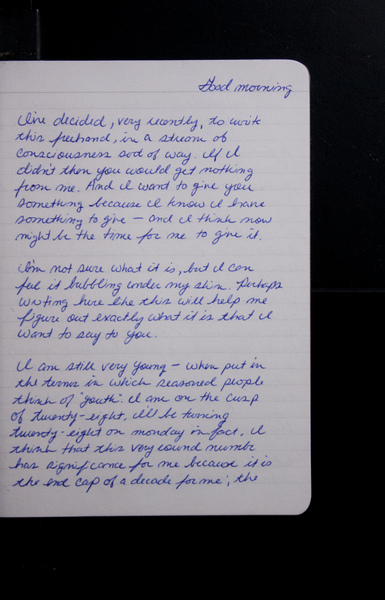 Good morning
I've decided, very recently, to write
this freehand, in a stream of
consciousness sort of way. If I
didn't then you would get nothing
from me. And I want to give you
something because I know I have
something to give – and I think now
might be the time for me to give it.
I'm not sure what it is, but I can
feel it bubbling under my skin. Perhaps
writing here like this will help me
figure out exactly what it is that I
want to say to you.
I am still very young – when put in
the terms in which seasoned people
think of 'youth'. I am on the cusp
of twenty-eight, I'll be turning
twenty-eight on monday in fact. I
think that this very round number
has significance for me because it is
the end cap of a decade for me; the